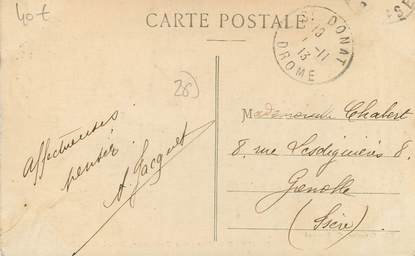 40€
CARTE POSTALE
St DONAT
7-11
13
DROME
28)
Mademoiselle Chabert
8. rue Lesdiguières 8.
Grenoble
(Isère)
Affectueuses
pensées
A. Jacquet